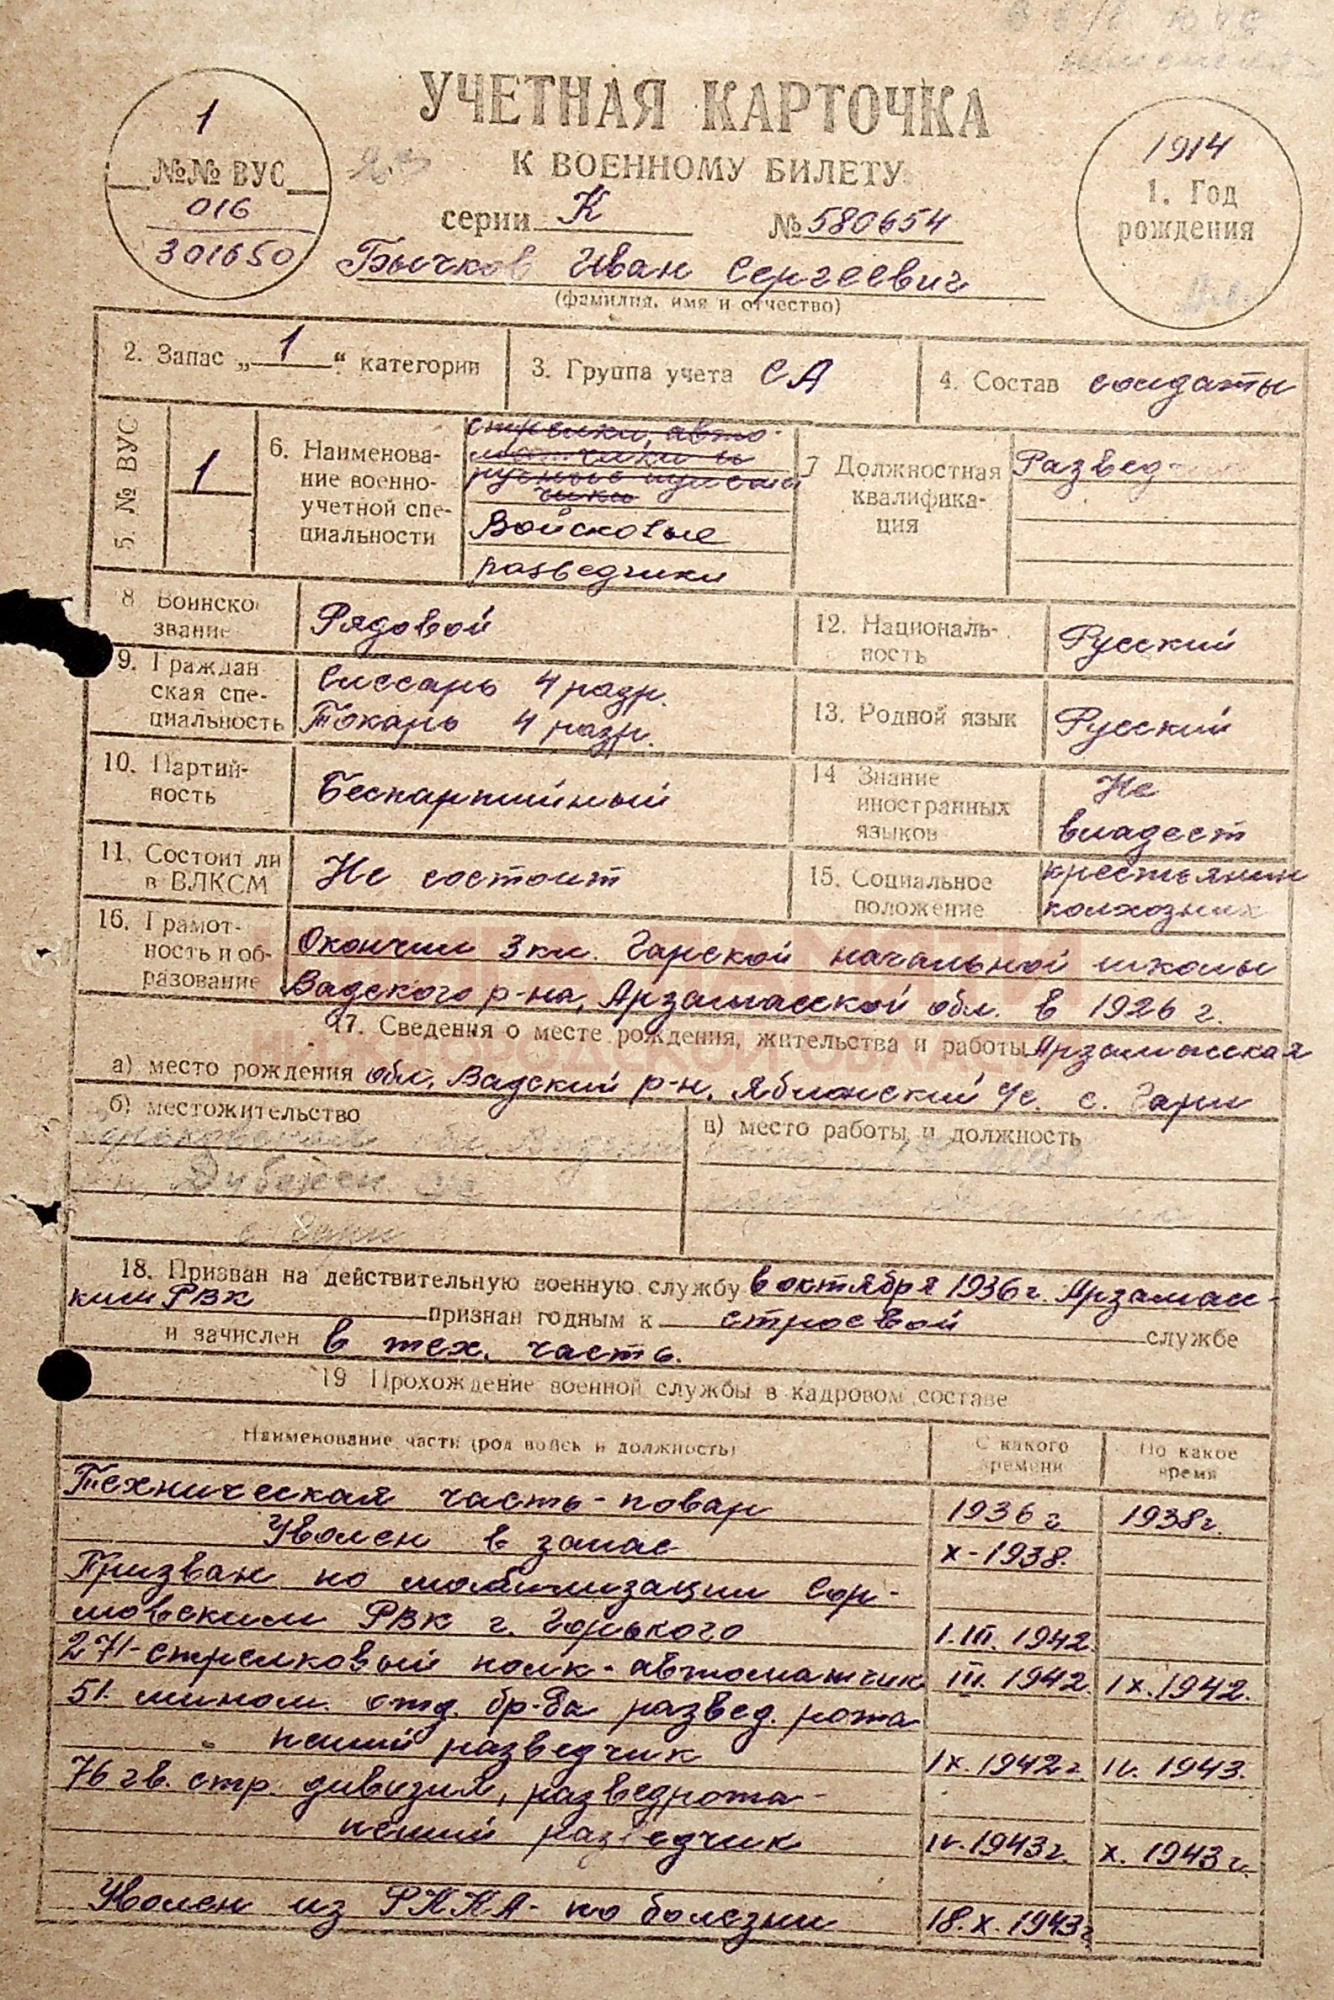 УЧЕТНАЯ КАРТОЧКА
К ВОЕННОМУ БИЛЕТУ
серии К №580654
1
№№ ВУС
016
301650
1914
1. Год
рождения
Бычков Иван Сергеевич
(фамилия, имя и отчество)
2. Запас „1“ категории
3. Группа учета СА
4. Состав солдаты
5. № ВУС
1
6. Наименова-
ние военно-
учетной спе-
циальности
стрелки, авто-
матчики и
ручные пулемет
чики
Войсковые
разведчики
7 Должностная
квалифика-
ция
Развед
8 Воинско
звание
Рядовой
9. Граждан
ская спе-
циальность
Слесарь 4 разр.
Токарь 4 разр.
10. Партий-
ность
Беспартийный
11. Состоит ли
в ВЛКСМ
Не состоит
12. Националь-
ность
Русский
13. Родной язык
Русский
14 Знание
иностранных
языков
Не
владеет
15. Социальное
положение
крестьянин
колхозник
16. Грамот-
ность и об-
разование
Окончил 3 кл. Гарской начальной школы
Вадского р-на, Арзамасской обл. в 1926 г.
КНИГА ПАМЯТИ
НИЖЕГОРОДСКОЙ ОБЛАСТИ
17. Сведения о месте рождения, жительства и работы Арзамасская
а) место рождения обл, Вадский р-н, Яблонский с/с. с. Гари
б) местожительство
обл.
с Гари
в) место работы и должность
18. Призван на действительную военную службу в октября 1936 г. Арзамас-
ким РВК признан годным к строевой службе
и зачислен в тех. часть.
19 Прохождение военной службы в кадровом составе
Наименование части (род войск и должность)
С какого
времени
По какое
время
Техническая часть-повар 1936 г 1938 г.
Уволен в запас X-1938.
Призван по мобилизации Сор-
мовским РВК г. Горького 1.III.1942.
271-стрелковый полк-автоматчик III.1942. IX.1942.
51. мином. отд. бр-да развед. рота
пеший разведчик IX.1942г. IV.1943.
76 гв. стр. дивизия, разведрота-
пеший разведчик IV.1943г. X.1943г.
Уволен из РККА-по болезни 18.X.1943г